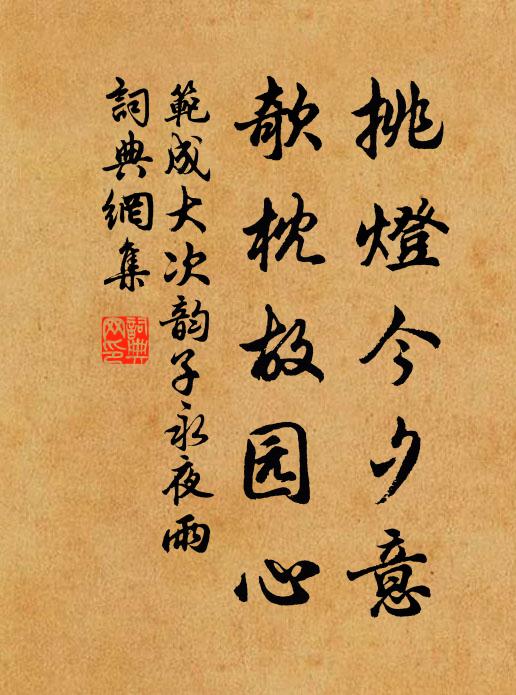 挑燈今夕意
欹枕故园心
範成大次韵子永夜雨
詞典網集
詞典網印